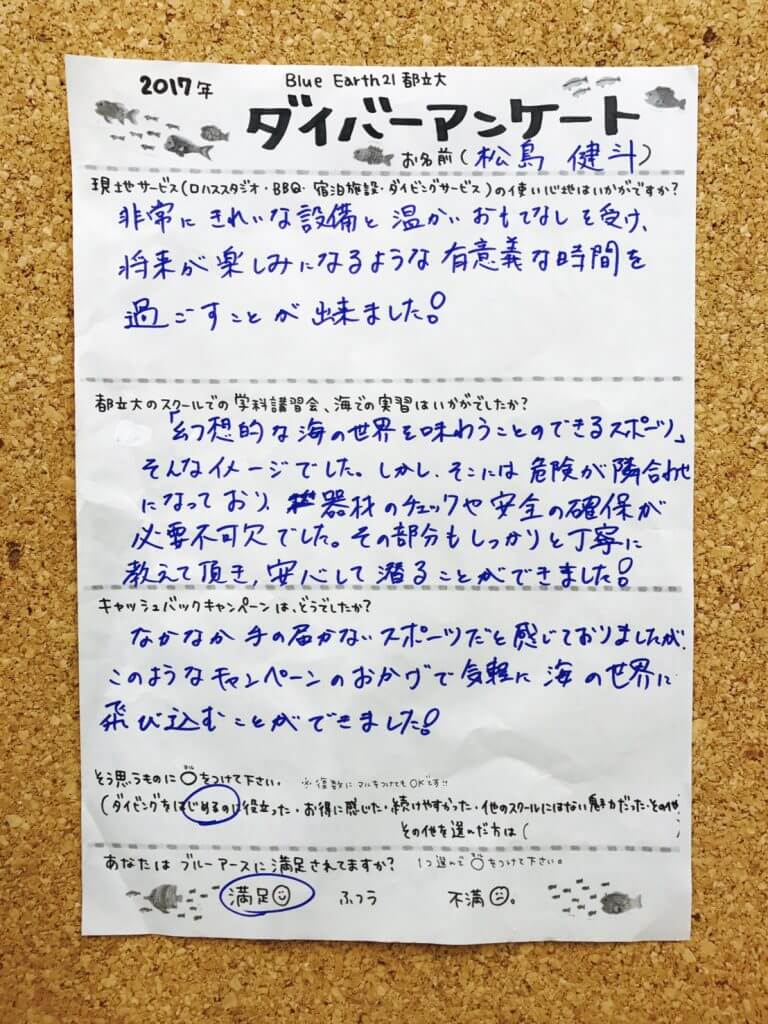 2017年
Blue Earth21 都立大
ダイバーアンケート
お名前 (松島 健斗)
現地サービス(ロハススタジオ・BBQ・宿泊施設・ダイビングサービス)の使い心地はいかがですか?
非常にきれいな設備と温かいおもてなしを受け、
将来が楽しみになるような有意義な時間を
過ごすことが出来ました!
都立大のスクールでの学科講習会、海での実習はいかがでしたか?
「幻想的な海の世界を味わうことのできるスポーツ」
そんなイメージでした。しかし、そこには危険が隣合わせ
になっており、器材のチェックや安全の確保が
必要不可欠でした。その部分もしっかりと丁寧に
教えて頂き、安心して潜ることができました!
キャッシュバックキャンペーンは、どうでしたか?
なかなか手の届かないスポーツだと感じておりましたが、
このようなキャンペーンのおかげで気軽に海の世界に
飛び込むことができました!
そう思うものに○をつけて下さい。 ※複数にマルをつけてもOKです!!
(ダイビングをはじめるのに役立った・お得に感じた・続けやすかった・他のスクールにはない魅力だった・その他
その他を選んだ方は( )
あなたはブルーアースに満足されてますか? 1つ選んで○をつけて下さい。
満足 ふつう 不満。